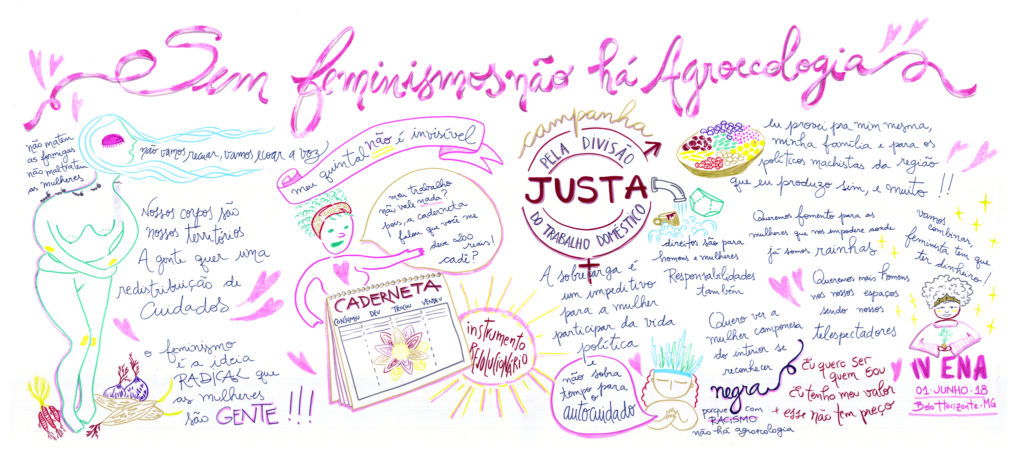 Sem feminismos não há Agroecologia
não matem
as formigas
não maltratem
as mulheres
não vamos recuar, vamos ecoar a voz
Nossos corpos são
nossos territórios
A gente quer uma
redistribuição de
cuidados
o feminismo
é a ideia
RADICAL que
as mulheres
são GENTE!!!
meu quintal não é invisível
meu trabalho
não vale nada?
pois, a caderneta
falou que você me
deve 2800
reais!
cadê?
CADERNETA
CONSUMIU DEU TROCOU VENDEU
instrumento
REVOLUCIONÁRIO
campanha
PELA DIVISÃO
JUSTA
DO TRABALHO DOMÉSTICO
direitos são para
homens e mulheres
Responsabilidades
também
A sobrecarga é
um impeditivo
para a mulher
participar da vida
política
e
não sobra
tempo para o
autocuidado
eu provei pra mim mesma,
minha família e para os
políticos machistas da região
que eu produzo sim, e muito!!
Queremos fomento para as
mulheres que nos empodere aonde
já somos rainhas
vamos
combinar,
feminista tem que
ter dinheiro!
Queremos mais homens
nos nossos espaços
sendo nossos
telespectadores
Quero ver a
mulher camponesa
do interior se
reconhecer
negra
porque com
RACISMO
não há agroecologia
Eu quero ser
quem sou
Eu tenho meu valor
e esse não tem preço
IV ENA
01·JUNHO·18
Belo Horizonte-MG